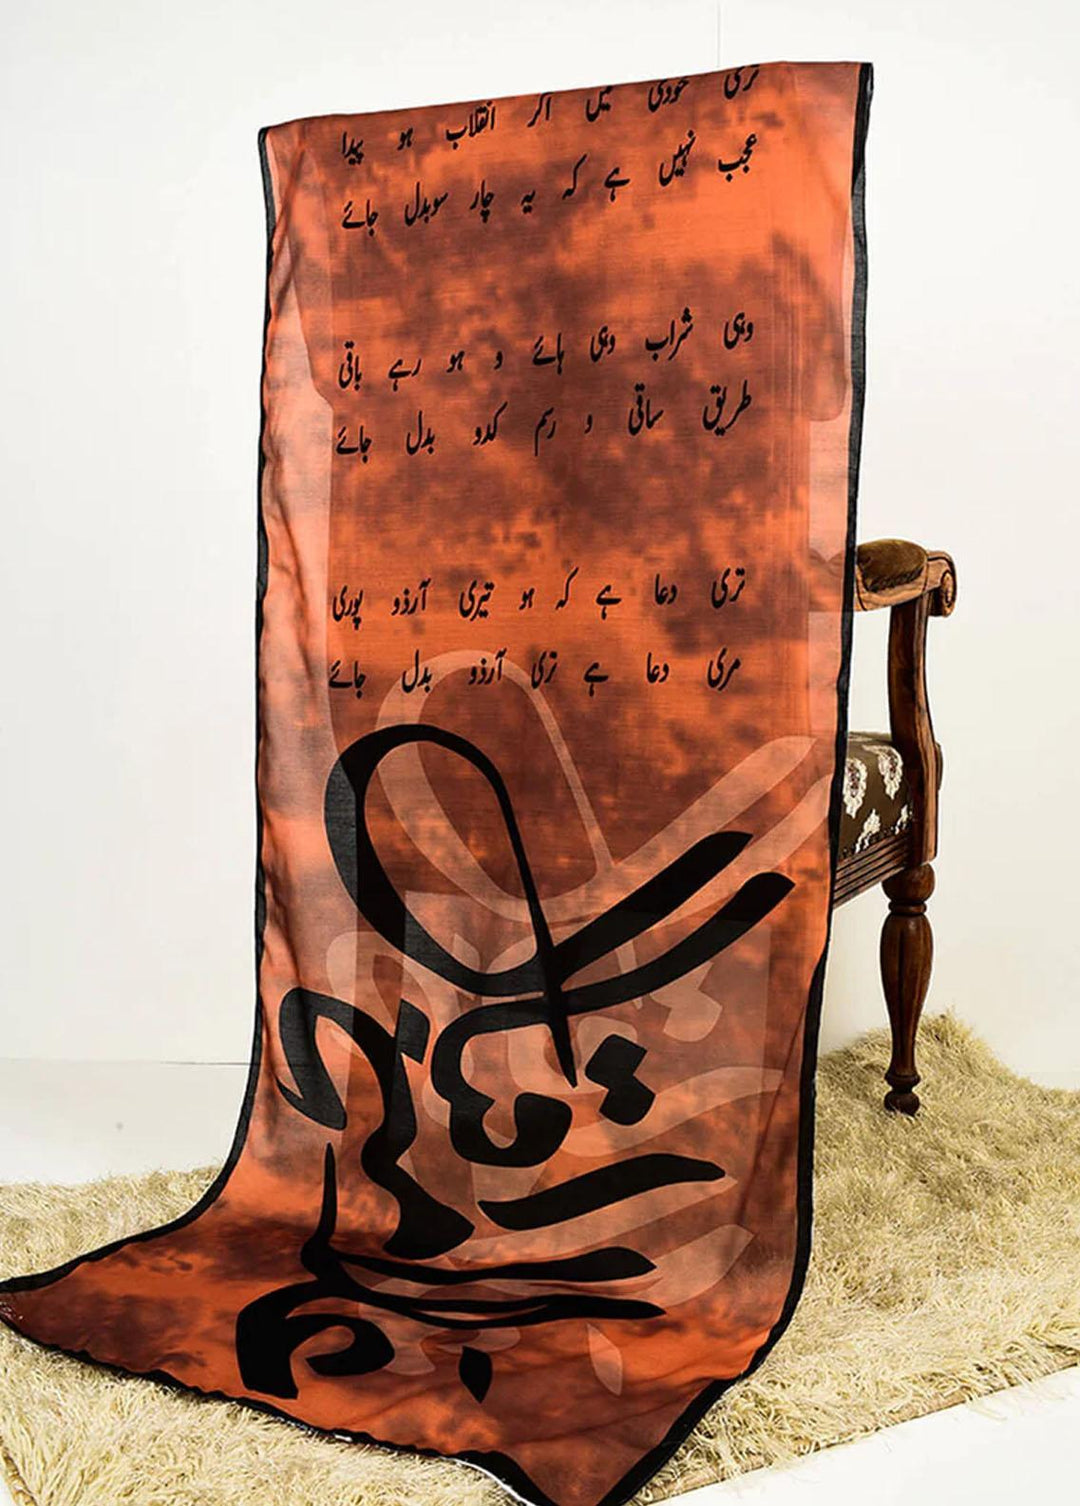 تری خودی میں اگر انقلاب ہو پیدا
عجب نہیں ہے کہ یہ چار سو بدل جائے
وہی شراب وہی ہائے و ہو رہے باقی
طریق ساقی و رسم کدو بدل جائے
تری دعا ہے کہ ہو تیری آرزو پوری
مری دعا ہے تری آرزو بدل جائے